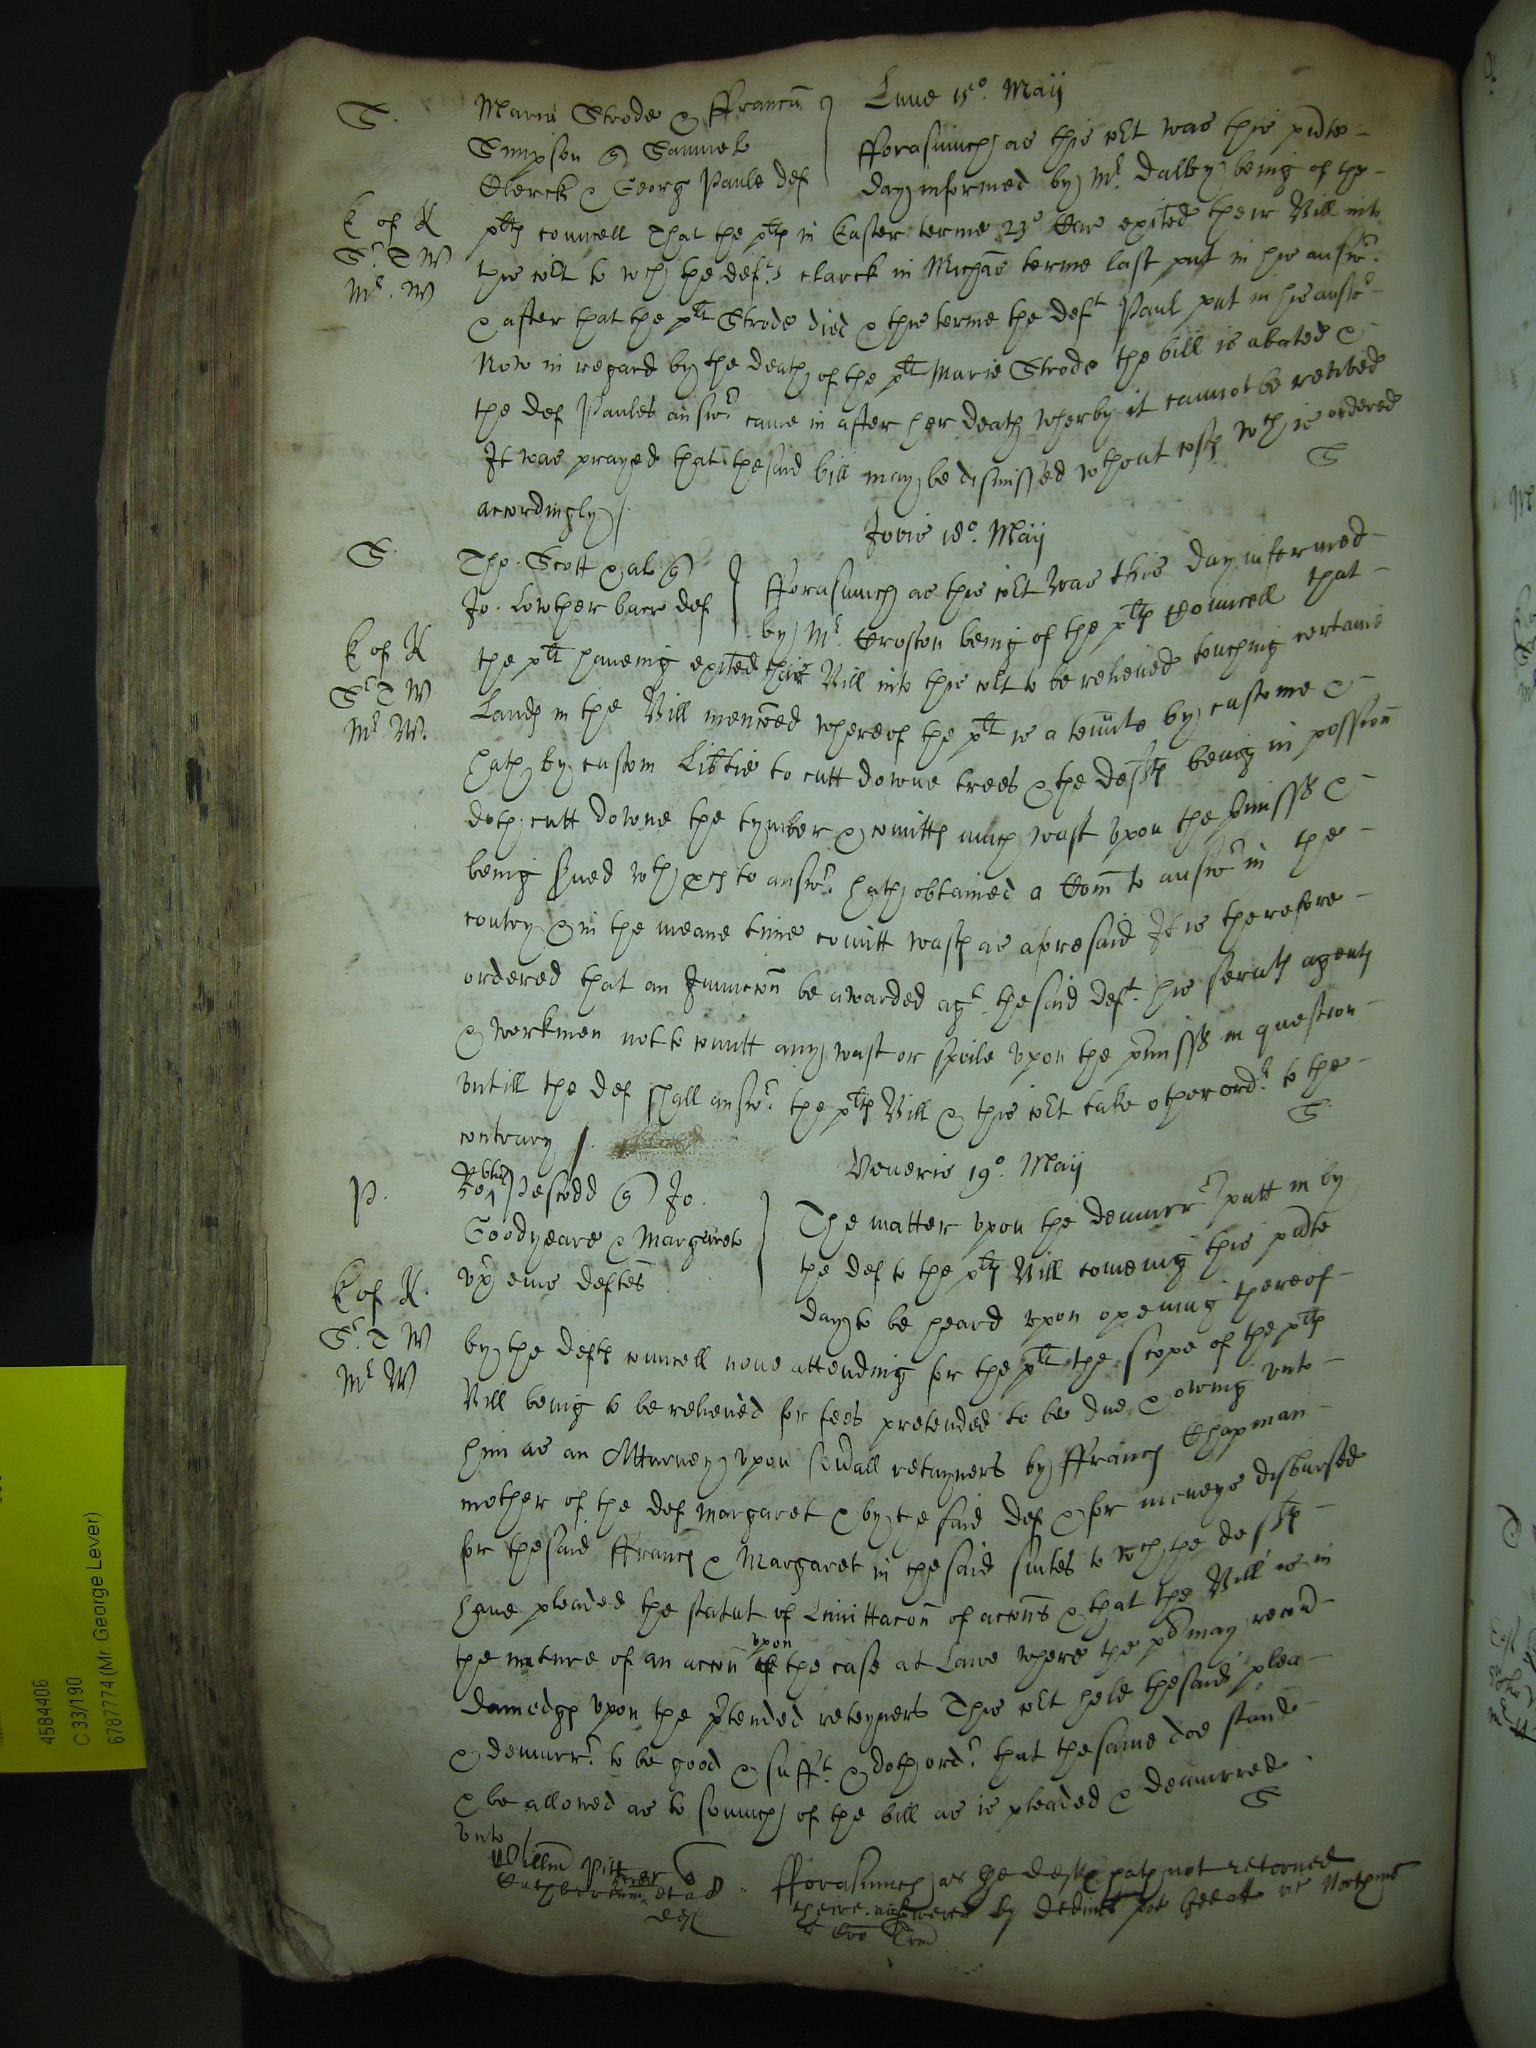 S. Marie Strode & ffrancis } Lune 15o. Maij
Simpson q Samuel
Clerck & Georg Paule def
fforasmuch as this cort was this pnte
day informed by Mr. Dalby being of the
E of K
Sr. T W
Mr. W
pltes councell That the pltes in Easter terme 23o Car exited their Bill into
this cort to wch the deft clarck in Michas terme last put in his answr.
& after that the plt Strode died & this terme the deft Paul put in his answr
Now in regard by the death of the plt Marie Strode the bill is abated &
the def Paules answr came in after her death wherby it cannot be revived
It was prayed that the said bill may be dismissed wthout costs wch is ordered
accordingly/. S
Jovis 18o. Maij
S Tho. Scott & al q
Jo. Lowther barr def }
fforasmuch as this cort was this day informed
by Mr. Croston being of the pltes Councell that
E of K
Sr T W
Mr W.
the plt haveing exited their Bill into this cort to be releived touching certaine
Lands in the Bill menconed whereof the plt is a tennte by custome &
hath by custom Libtie to cutt downe trees & the defts being in possion
doth cutt downe the tymber & comitts much wast upon the pmisss &
being sued wth pcs to answr. hath obtained a Com to answr in the
contry & in the meane time comitt wasts as aforesaid It is therefore
ordered that an Iniuncon be awarded agt. the said deft. his servts agents
& workmen not to comitt any wast or spoile upon the pmisss in question
untill the def shall answr. the pltes Bill & this cort take other ordr. to the
contrary /. S
Veneris 19o. Maij
P. Pescodd q Jo.
Goodyeare & Margareta
ux eius deftes }
The matter upon the demurrr putt in by
the def to the pltes Bill comeing this pnte
day to be heard upon opening thereof
E of K.
Sr. T W
Mr W
by the defts councell none attending for the plt the scope of the pltes
Bill being to be releived for fees pretended to be due & owing unto
him as an Atturney upon sevall retayners by ffrancs Chapman
mother of the def Margaret & by the said def & for moneys disbursed
for the said ffrancs & Margaret in the said suites to wch the defts
have pleaded the statut of Limittacon of accons & that the Bill is in
the nature of an accon upon the case at Lawe where the plt may recov
damedgs upon the ptended reteyners This cort held the said plea
& demurrr. to be good & sufft. & doth ordr. that the same doe stand
& be allowed as to somuch of the bill as is pleaded & demurred
unto/ S
Willm Pitt
et al
def
fforasmuch as the defts hath not retorned
theire answeres by dedimus pot
4584406
C 33/190
6787774 (Mr. George Lever)